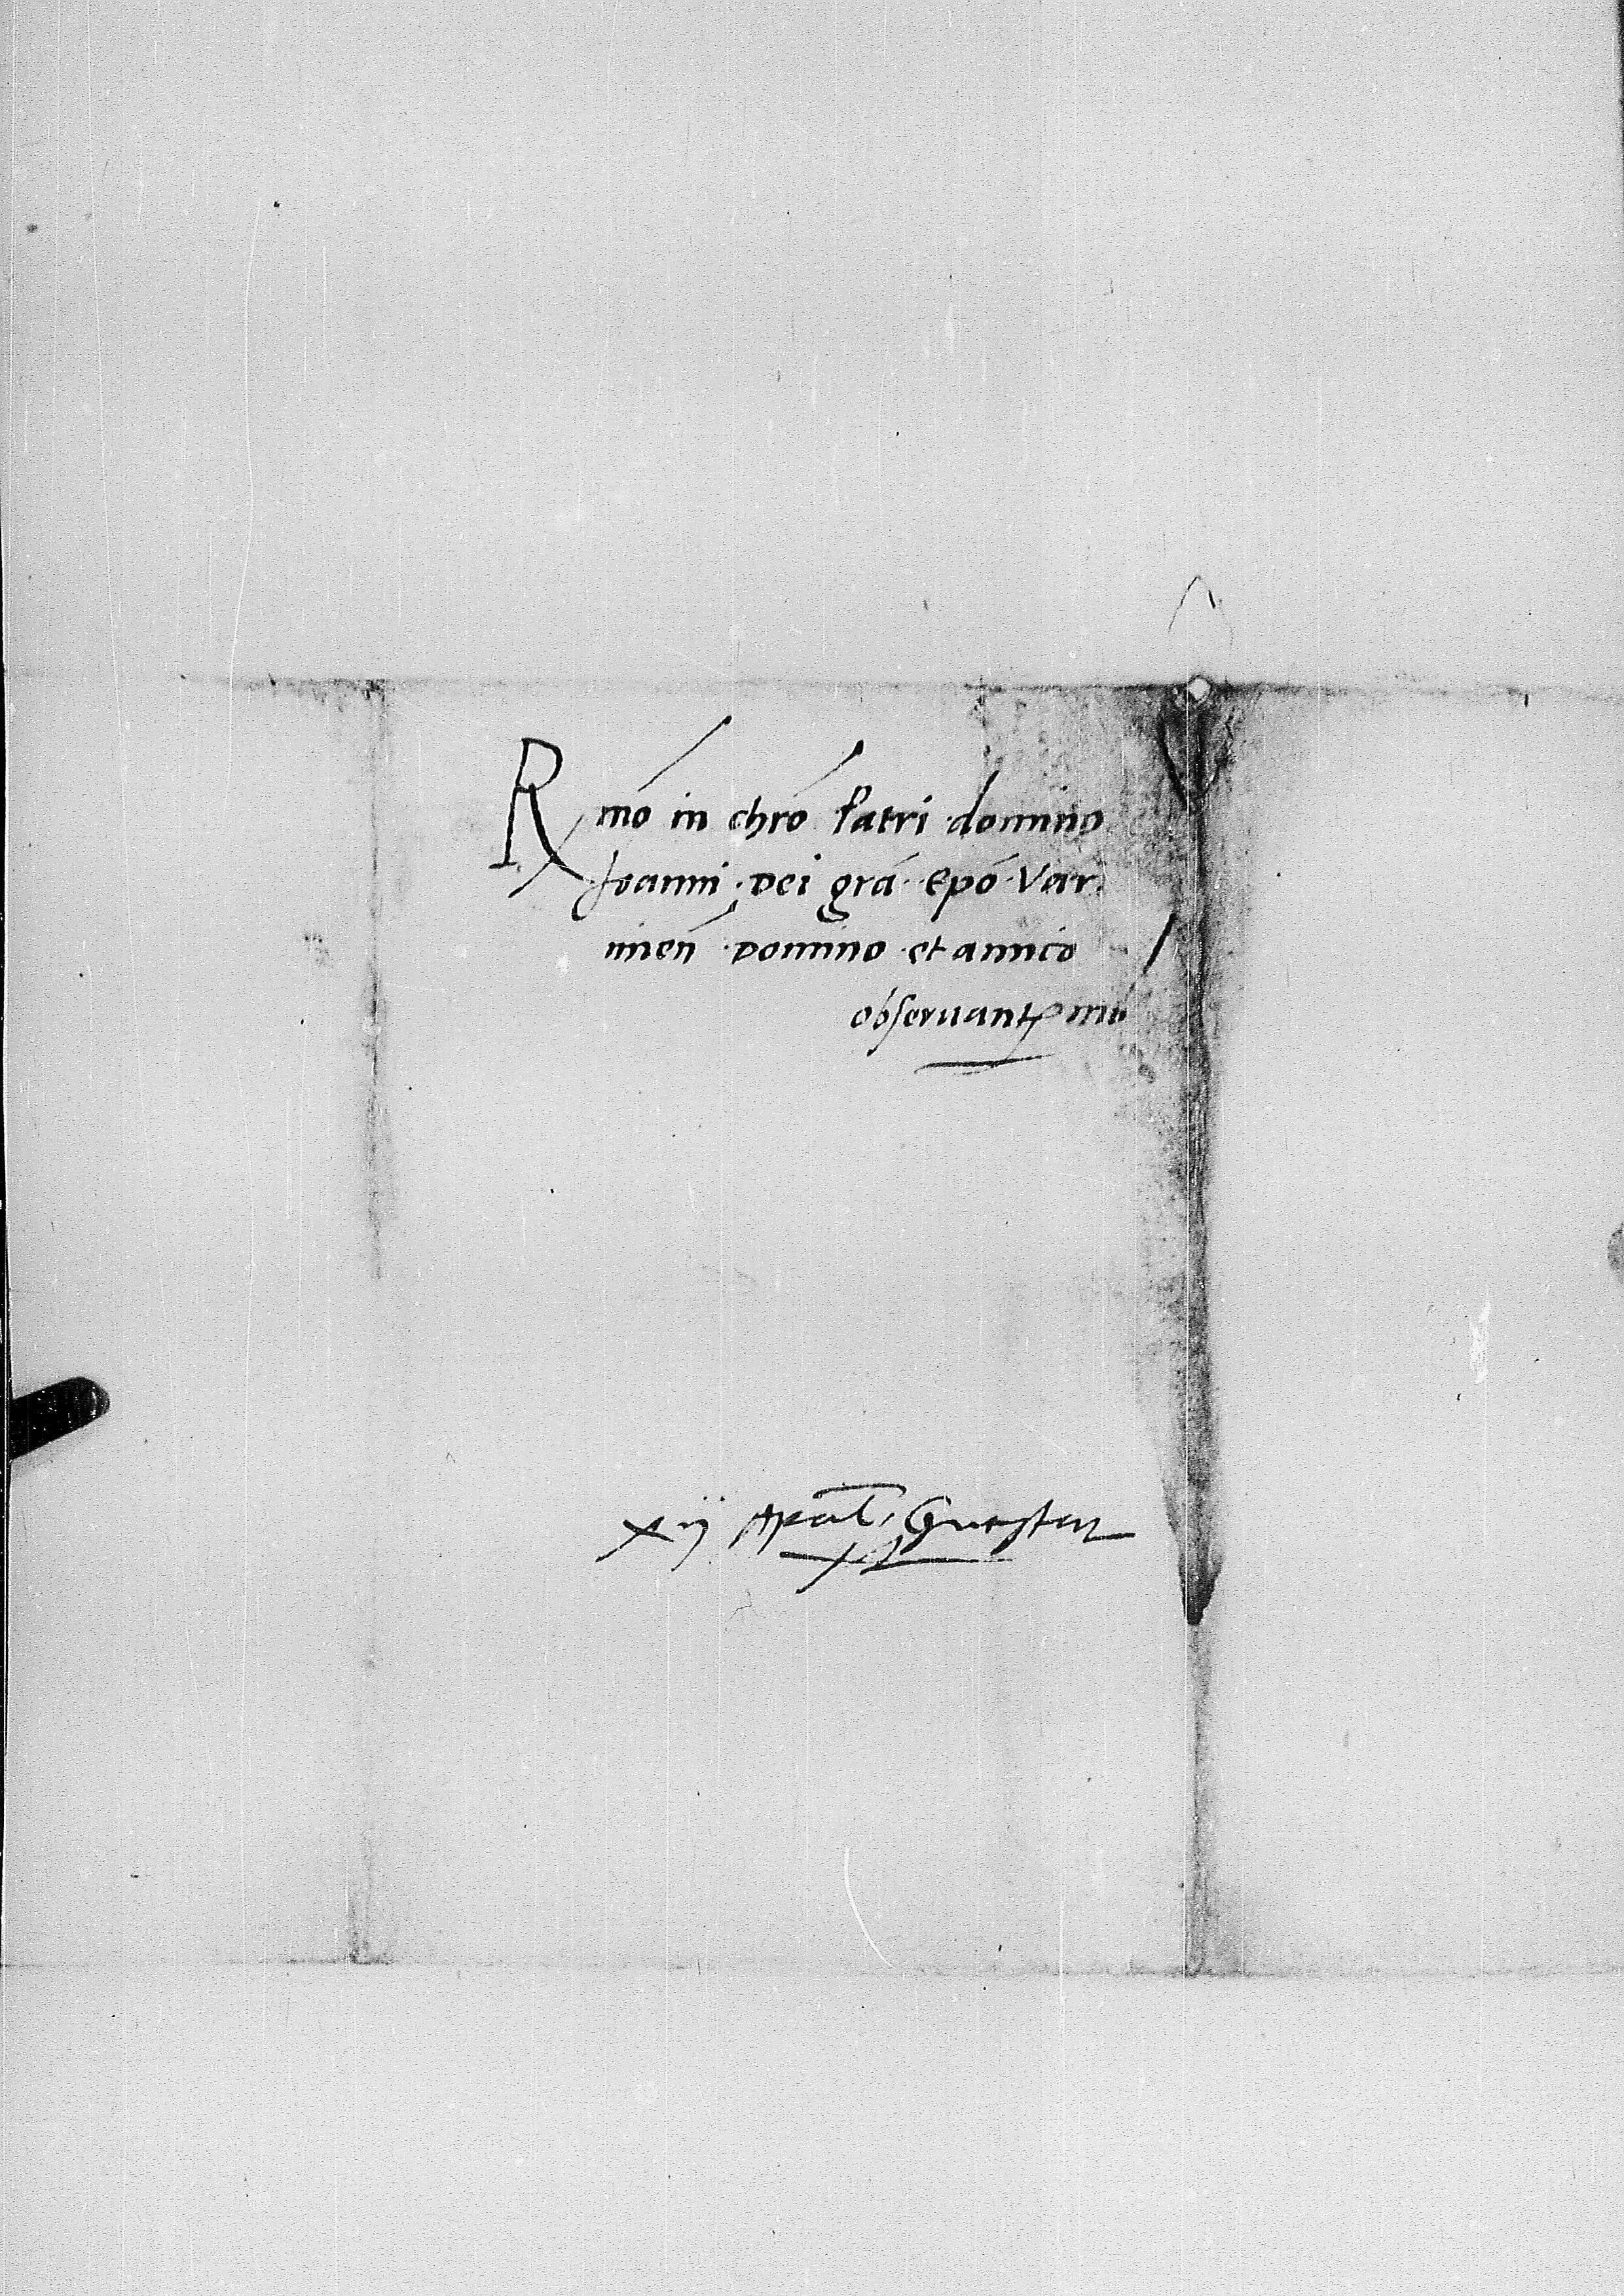 Rmo in chro Patri domino
Joanni Dei gra epo Var
mien Domino et amico
obseruant
xij Apil